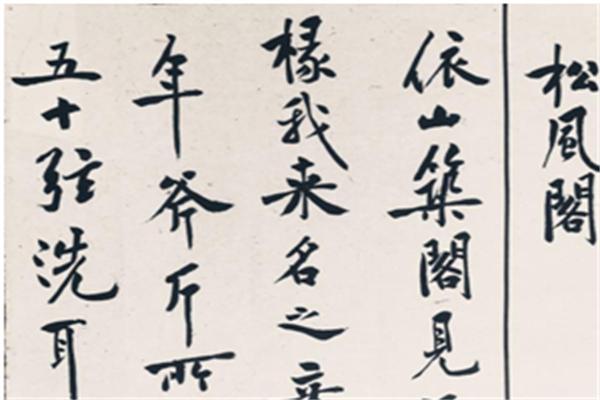 松風閣
依山築閣見
椽我来名之
年斧斤所
五十弦洗耳